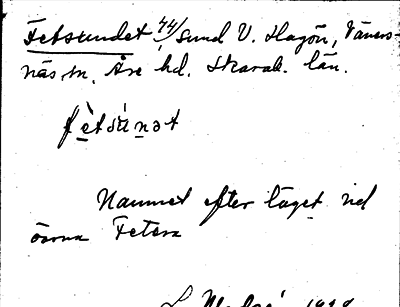 Fetsundet 44/ sund V. Hagön, Väners-
näs sn. Åse hd. Skarab. län.
fètsúnət
Namnet efter läget vid
öarna Fetarna